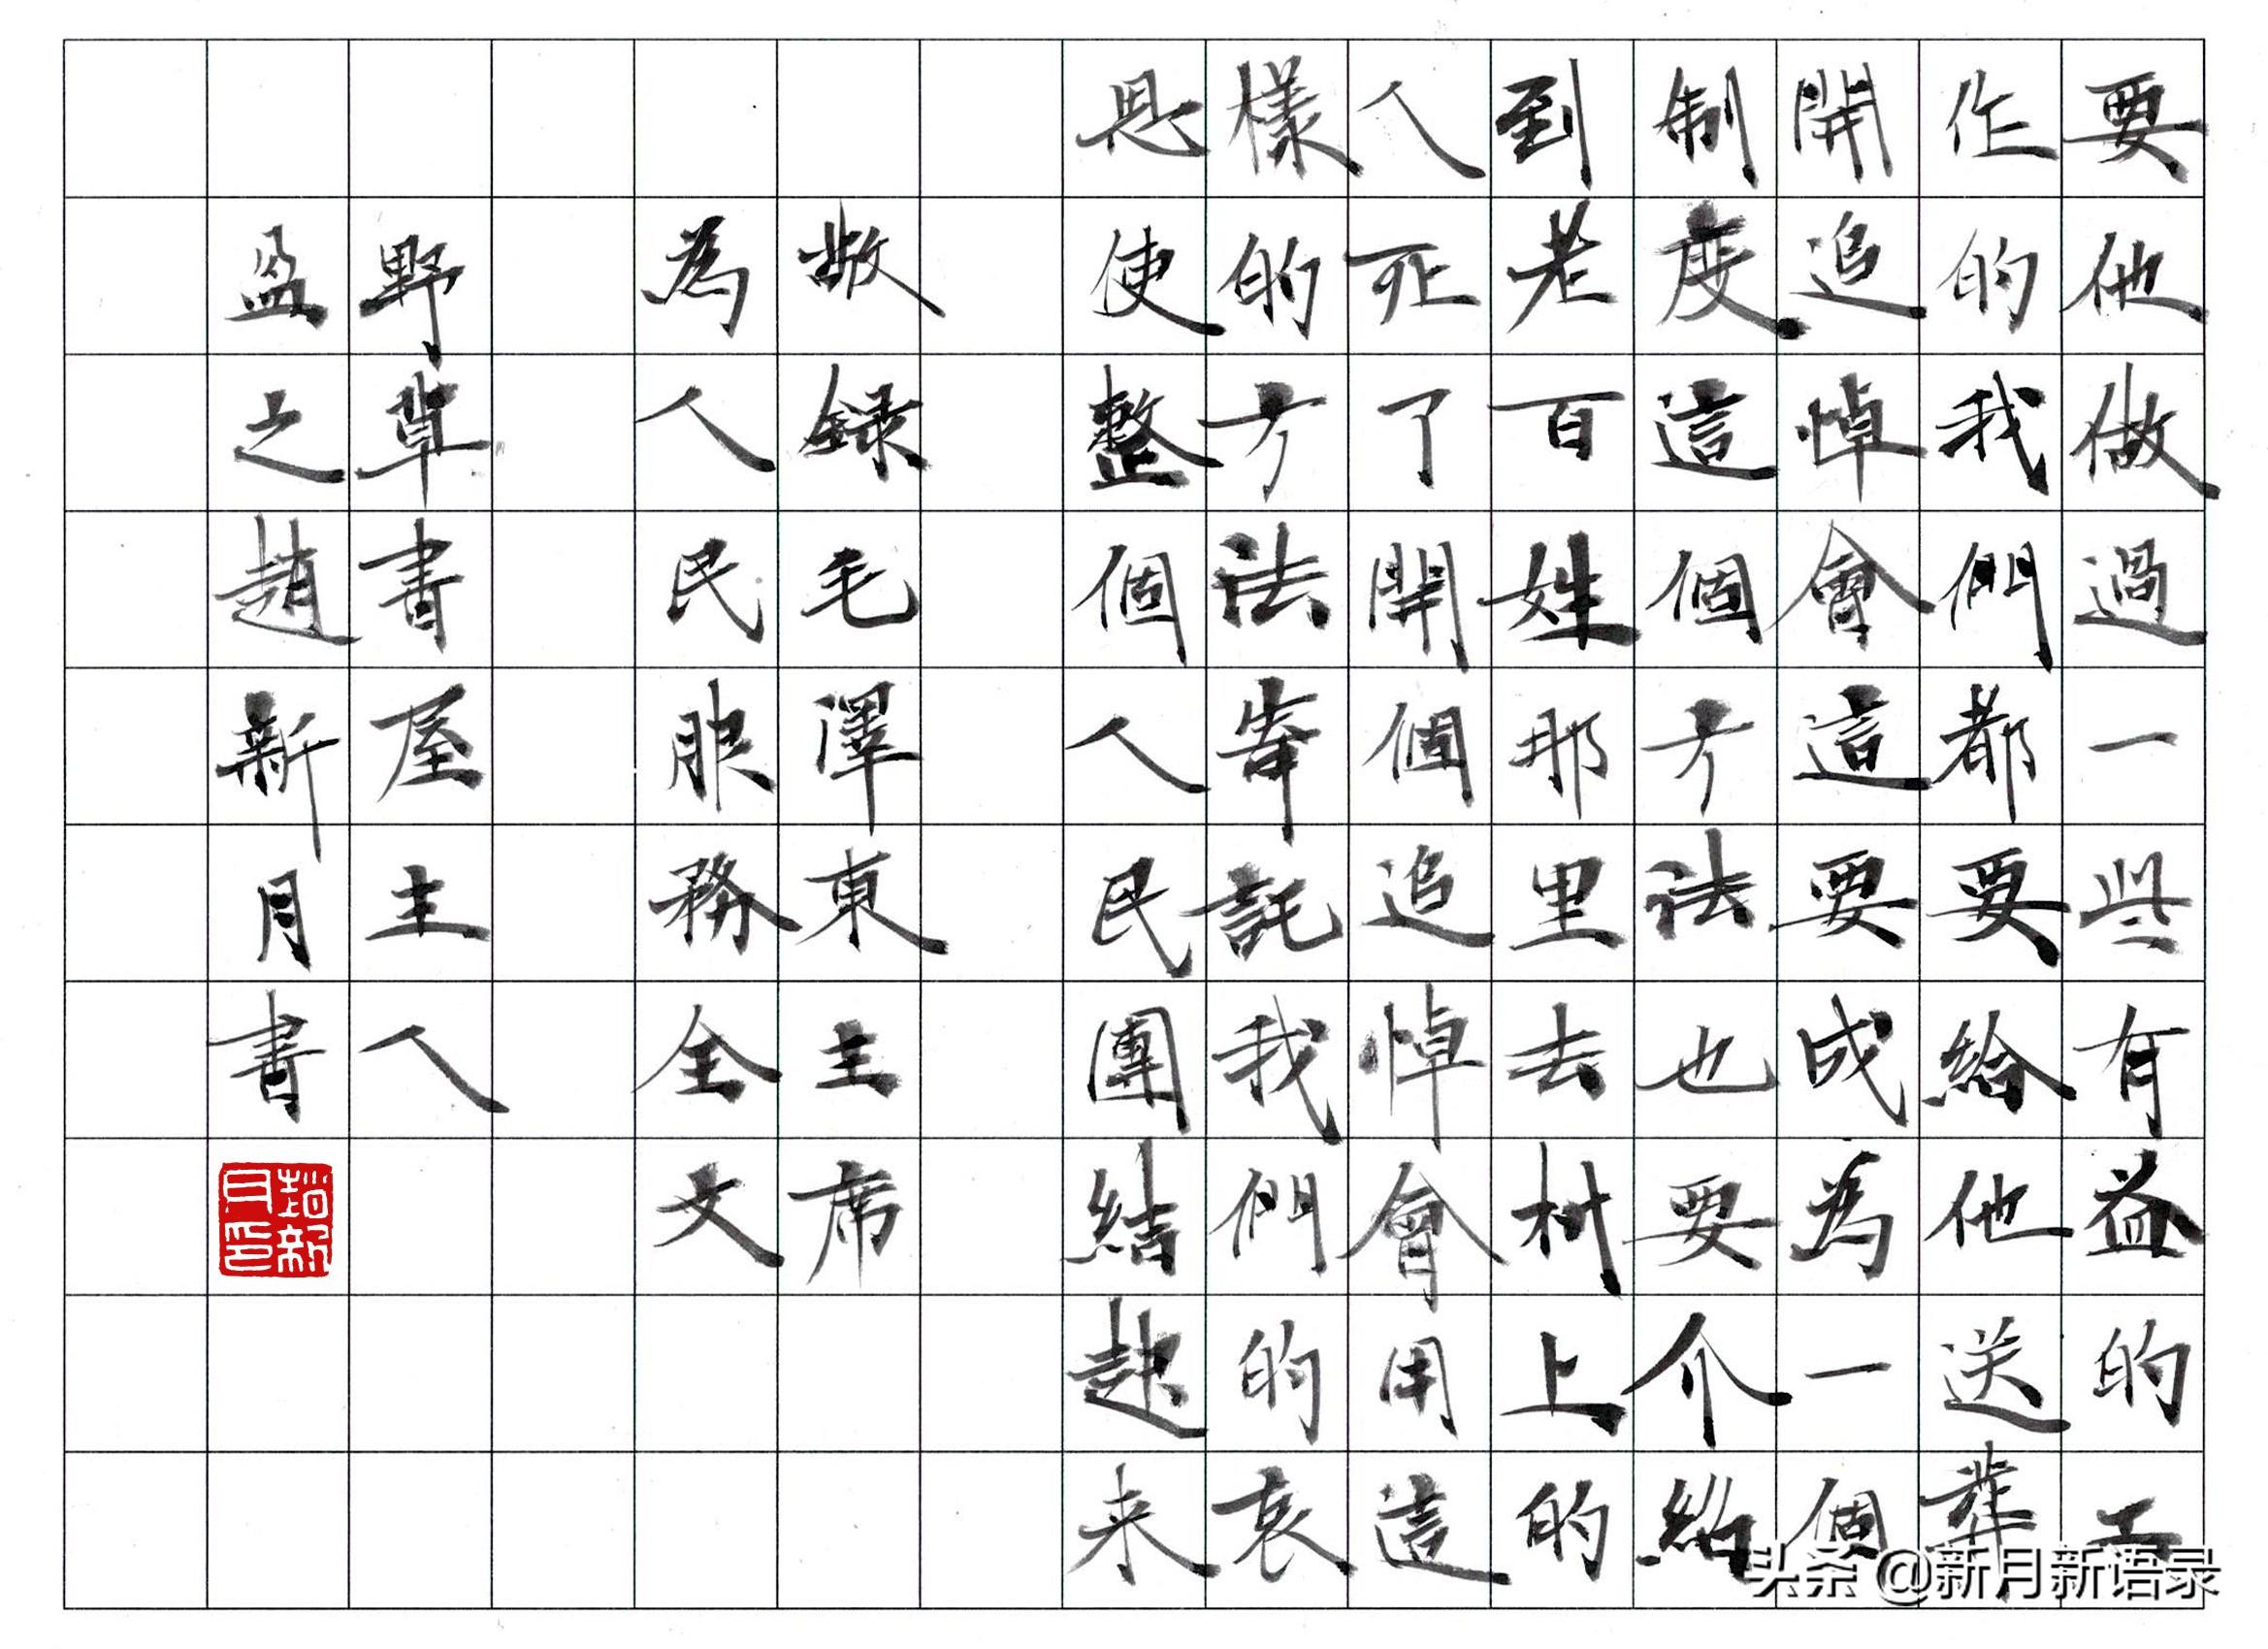 要他做過一些有益的工
作的我們都要給他送葬
開追悼會這要成為一個
制度這個方法也要介紹
到老百姓那里去村上的
人死了開個追悼會用這
樣的方法寄託我們的哀
思使整個人民團結起来
敬録毛澤東主席
為人民服務全文
野草書屋主人
盈之趙新月書
趙新月印
头条 @新月新语录